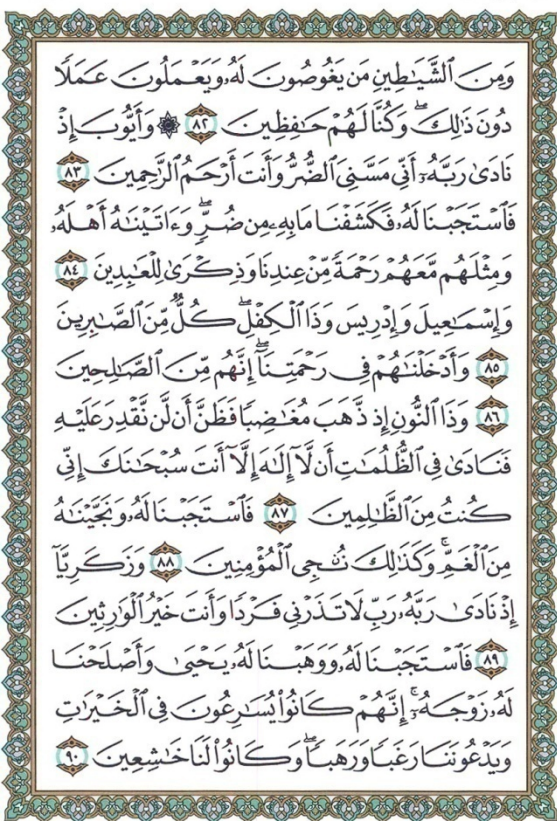 وَمِنَ ٱلشَّيَـٰطِينِ مَن يَغُوصُونَ لَهُۥ وَيَعْمَلُونَ عَمَلًا
دُونَ ذَٰلِكَۖ وَكُنَّا لَهُمْ حَـٰفِظِينَ ٨٢ ۞ وَأَيُّوبَ إِذْ
نَادَىٰ رَبَّهُۥٓ أَنِّى مَسَّنِىَ ٱلضُّرُّ وَأَنتَ أَرْحَمُ ٱلرَّٰحِمِينَ ٨٣
فَٱسْتَجَبْنَا لَهُۥ فَكَشَفْنَا مَا بِهِۦ مِن ضُرٍّۖ وَءَاتَيْنَـٰهُ أَهْلَهُۥ
وَمِثْلَهُم مَّعَهُمْ رَحْمَةً مِّنْ عِندِنَا وَذِكْرَىٰ لِلْعَـٰبِدِينَ ٨٤
وَإِسْمَـٰعِيلَ وَإِدْرِيسَ وَذَا ٱلْكِفْلِۖ كُلٌّ مِّنَ ٱلصَّـٰبِرِينَ
٨٥ وَأَدْخَلْنَـٰهُمْ فِى رَحْمَتِنَآۖ إِنَّهُم مِّنَ ٱلصَّـٰلِحِينَ
٨٦ وَذَا ٱلنُّونِ إِذ ذَّهَبَ مُغَـٰضِبًا فَظَنَّ أَن لَّن نَّقْدِرَ عَلَيْهِ
فَنَادَىٰ فِى ٱلظُّلُمَـٰتِ أَن لَّآ إِلَـٰهَ إِلَّآ أَنتَ سُبْحَـٰنَكَ إِنِّى
كُنتُ مِنَ ٱلظَّـٰلِمِينَ ٨٧ فَٱسْتَجَبْنَا لَهُۥ وَنَجَّيْنَـٰهُ
مِنَ ٱلْغَمِّۚ وَكَذَٰلِكَ نُـۨجِى ٱلْمُؤْمِنِينَ ٨٨ وَزَكَرِيَّآ
إِذْ نَادَىٰ رَبَّهُۥ رَبِّ لَا تَذَرْنِى فَرْدًا وَأَنتَ خَيْرُ ٱلْوَٰرِثِينَ
٨٩ فَٱسْتَجَبْنَا لَهُۥ وَوَهَبْنَا لَهُۥ يَحْيَىٰ وَأَصْلَحْنَا
لَهُۥ زَوْجَهُۥٓۚ إِنَّهُمْ كَانُوا۟ يُسَـٰرِعُونَ فِى ٱلْخَيْرَٰتِ
وَيَدْعُونَنَا رَغَبًا وَرَهَبًاۖ وَكَانُوا۟ لَنَا خَـٰشِعِينَ ٩٠